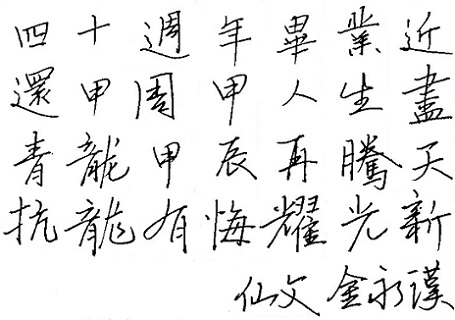 四十週年畢業近
還甲周甲人生盡
青龍甲辰再騰天
抗龍有悔耀光新
仙文 金永璞